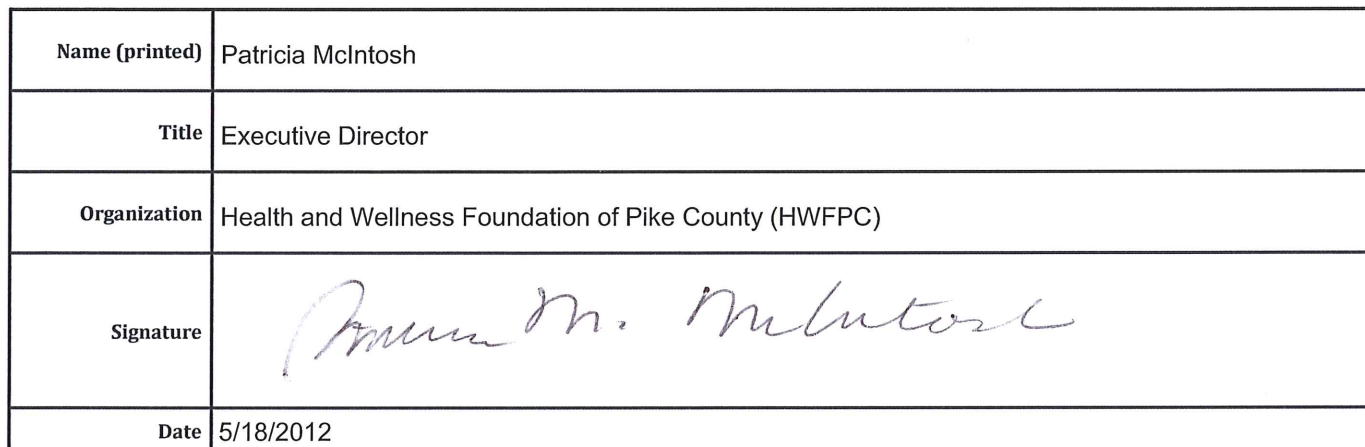 Name (printed) Patricia McIntosh
Title Executive Director
Organization Health and Wellness Foundation of Pike County (HWFPC)
Signature M. McIntosh
Date 5/18/2012